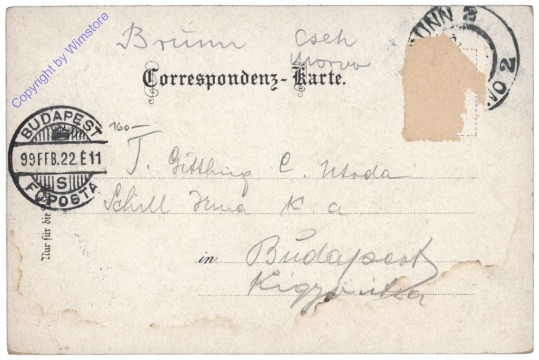 Copyright by Wimstore
Brünn Cseh
Morva
Correspondenz-Karte.
BRÜNN 2
BRNO 2
160—
BUDAPEST
99 FEB. 22. É 11
S
FŐPOSTA
T. C.
Schill Irma K. a
in Budapest
Kigyó utca
Nur für die